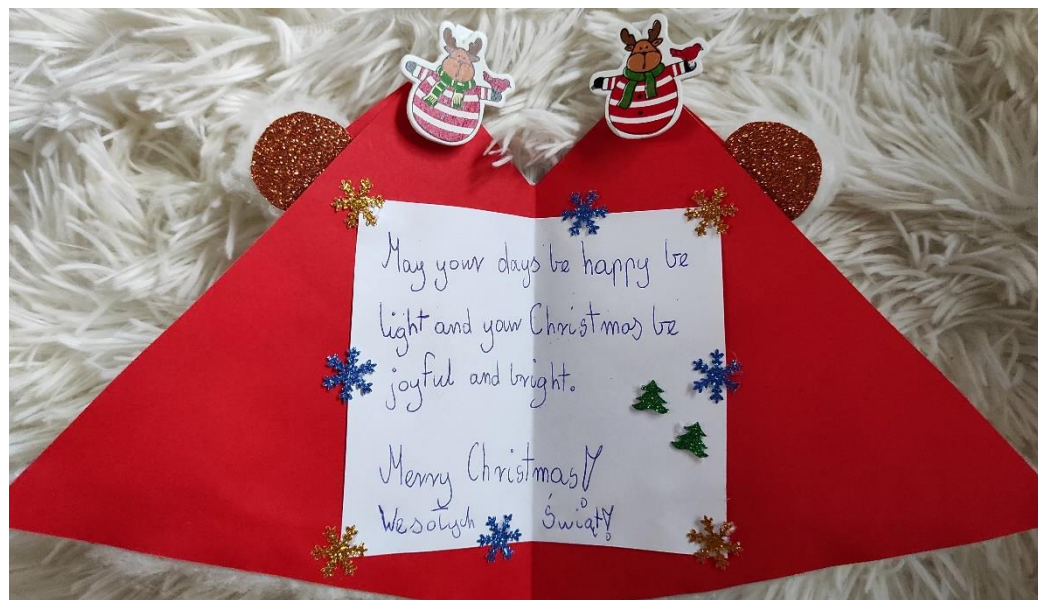 May your days be happy be
light and your Christmas be
joyful and bright.
Merry Christmas!
Wesołych Świąt!